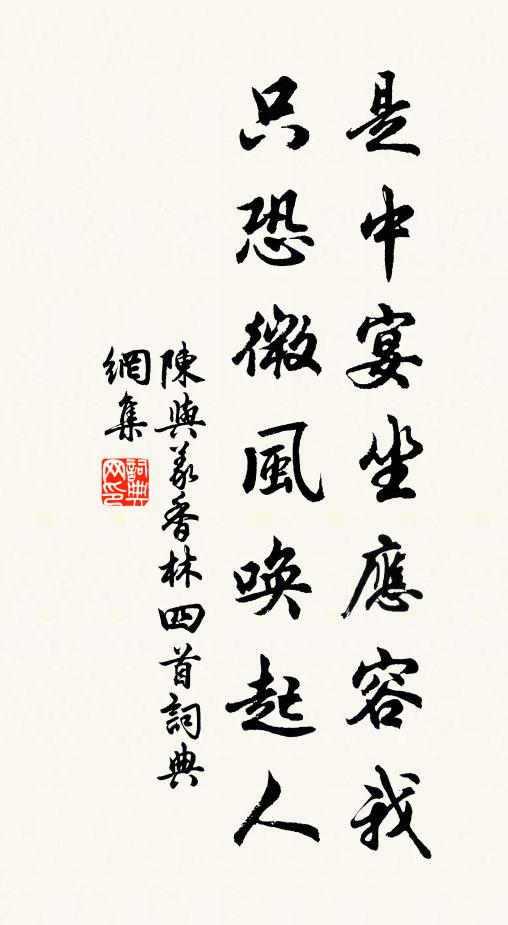 是中宴坐應容我
只恐微風喚起人
陳與義香林四首詞典
網集
詞典
网印